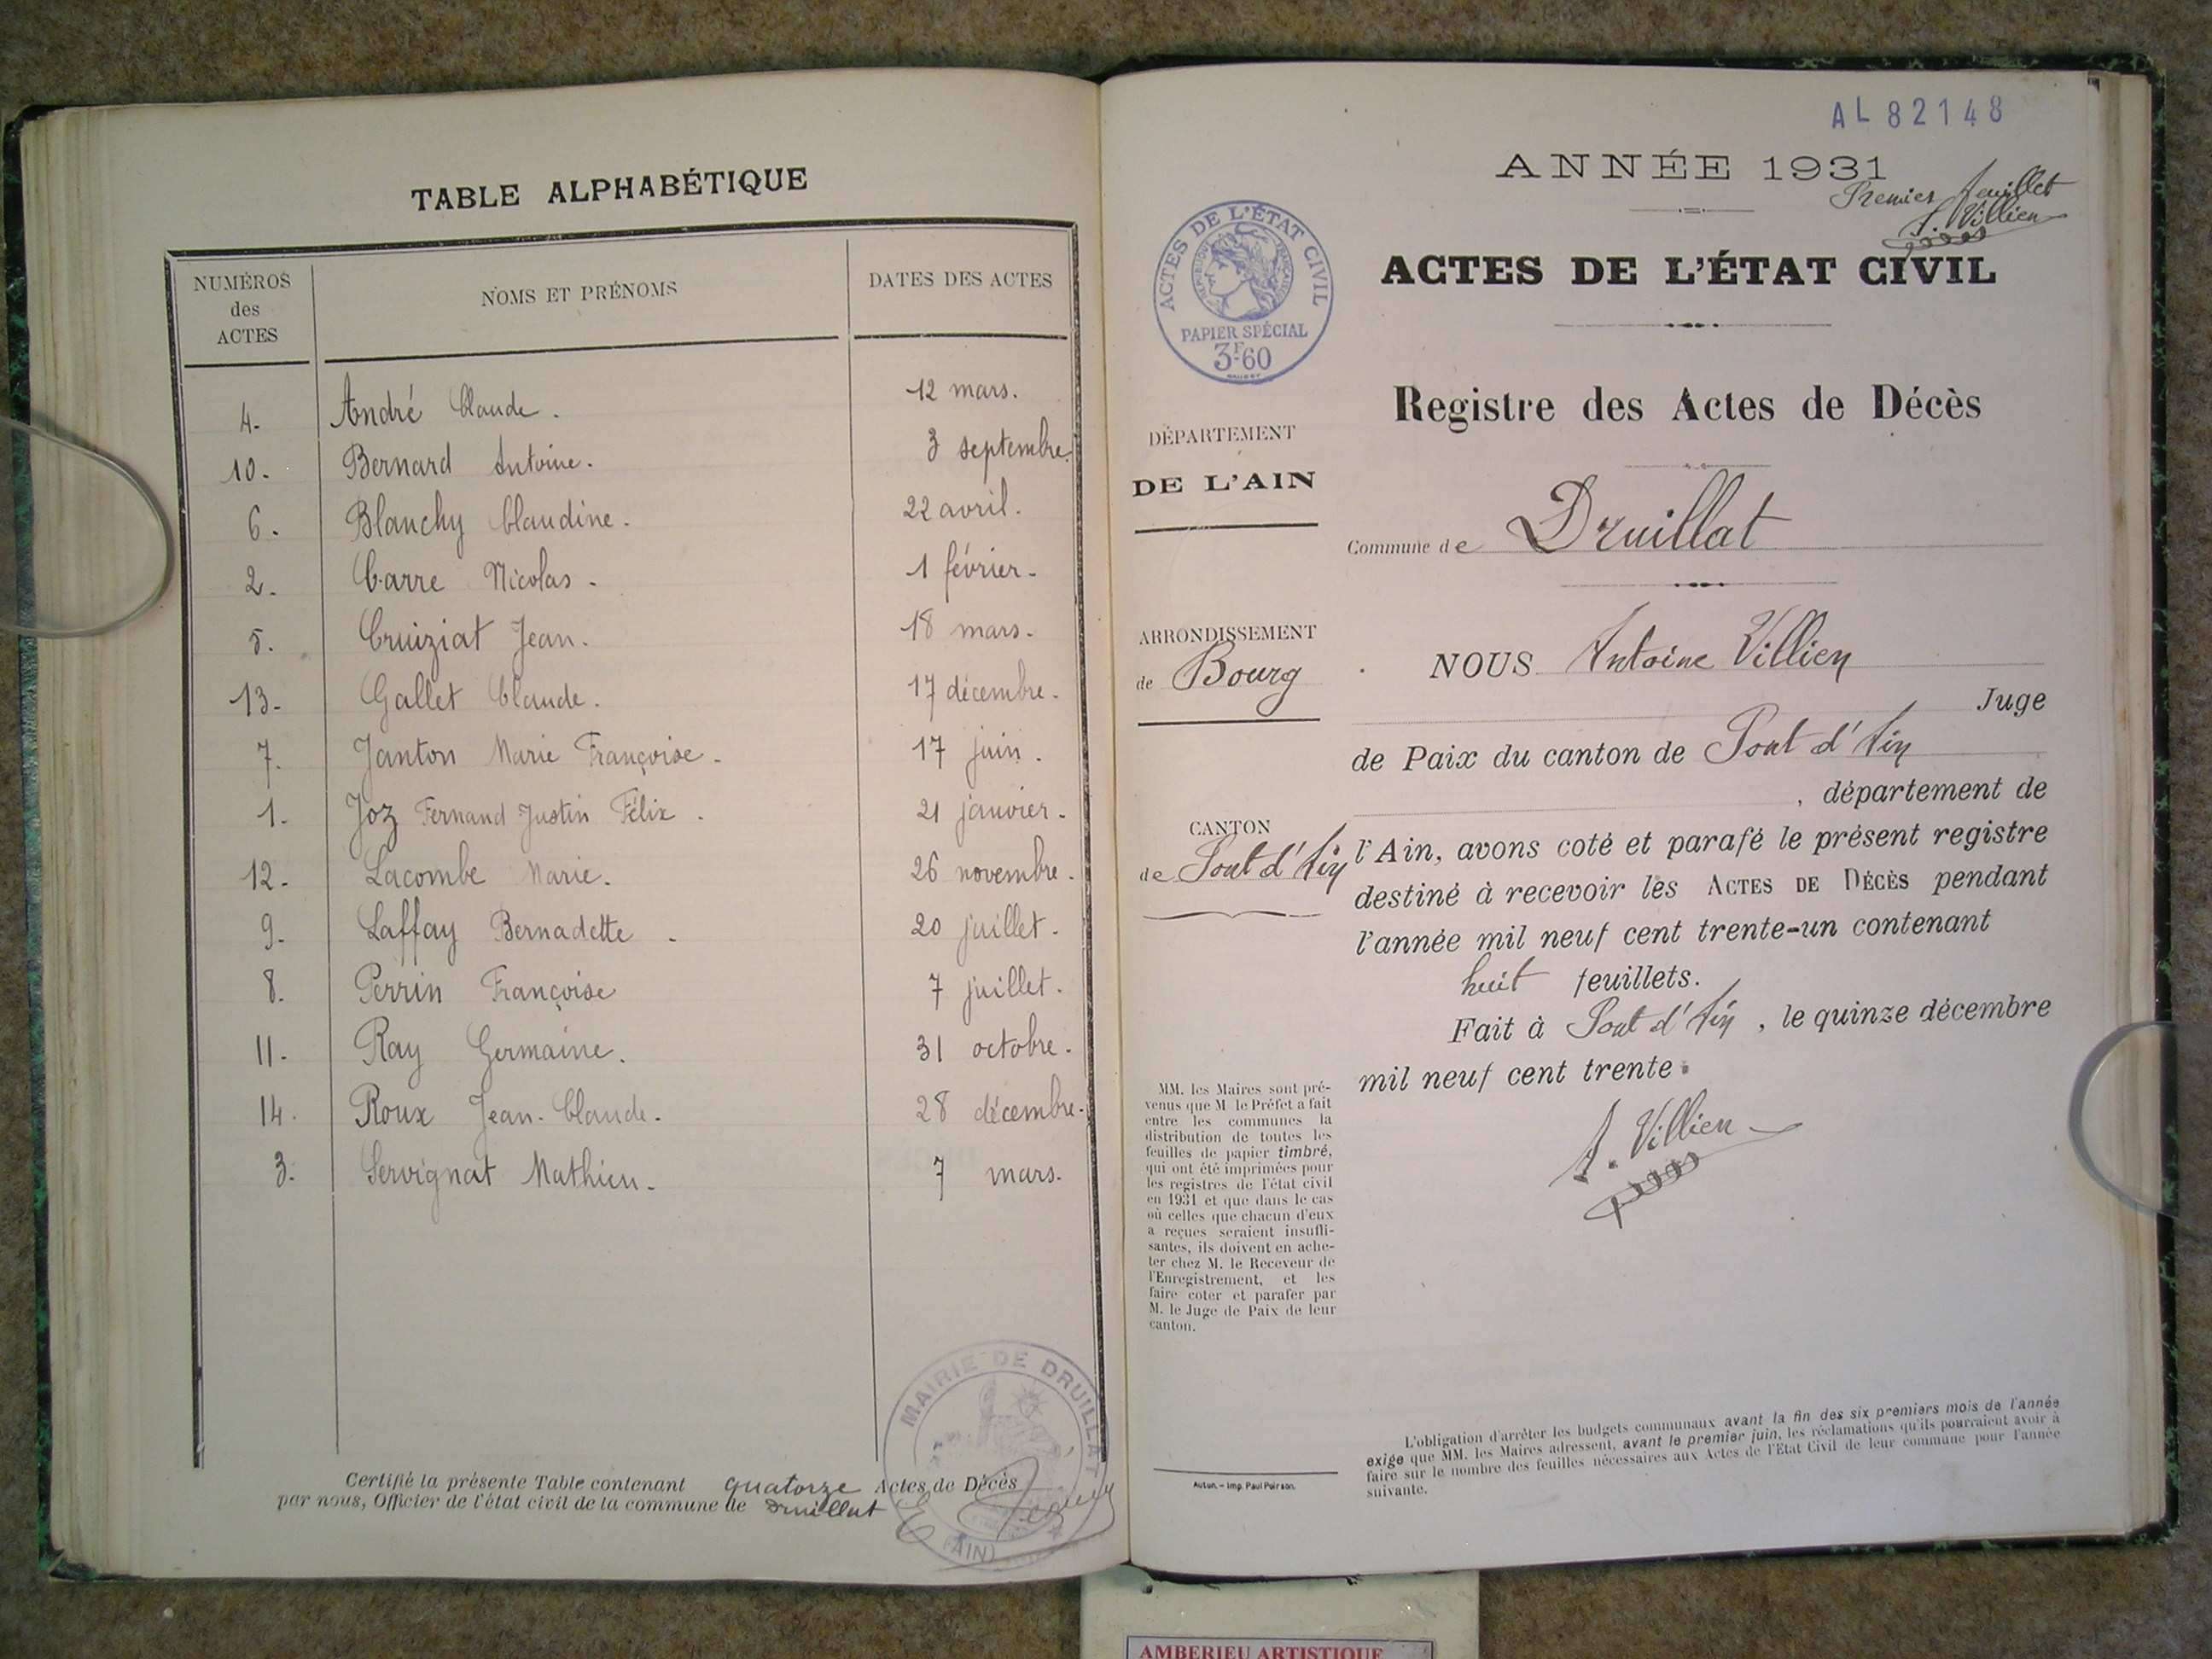 TABLE ALPHABÉTIQUE
NUMÉROS des ACTES NOMS ET PRÉNOMS DATES DES ACTES
4. André Claude. 12 mars.
10. Bernard Antoine. 3 septembre.
6. Blanchy Claudine. 22 avril.
2. Carre Nicolas. 1 février.
5. Cruiziat Jean. 18 mars.
13. Gallet Claude. 17 décembre.
7. Janton Marie Françoise. 17 juin.
1. Joz Fernand Justin Félix. 21 janvier.
12. Lacombe Marie. 26 novembre.
9. Laffay Bernadette. 20 juillet.
8. Perrin Françoise 7 juillet.
11. Ray Germaine. 31 octobre.
14. Roux Jean-Claude. 28 décembre.
3. Servignat Mathieu. 7 mars.
Certifié la présente Table contenant quatorze Actes de Décès
par nous, Officier de l'état civil de la commune de Druillat
MAIRIE DE DRUILLAT
(AIN)
AL 82148
ANNÉE 1931
Premier feuillet
A. Villien
ACTES DE L'ÉTAT CIVIL
RÉPUBLIQUE FRANÇAISE
PAPIER SPÉCIAL
3F.60
ACTES DE L'ÉTAT CIVIL
Registre des Actes de Décès
DÉPARTEMENT
DE L'AIN
Commune de Druillat
ARRONDISSEMENT
de Bourg
CANTON
de Pont d'Ain
NOUS Antoine Villien
Juge
de Paix du canton de Pont d'Ain
, département de
l'Ain, avons coté et parafé le présent registre
destiné à recevoir les ACTES DE DÉCÈS pendant
l'année mil neuf cent trente-un contenant
huit feuillets.
Fait à Pont d'Ain, le quinze décembre
mil neuf cent trente.
A. Villien
MM. les Maires sont pré-
venus que M le Préfet a fait
entre les communes la
distribution de toutes les
feuilles de papier timbré,
qui ont été imprimées pour
les registres de l'état civil
en 1931 et que dans le cas
où celles que chacun d'eux
a reçues seraient insuffi-
santes, ils doivent en ache-
ter chez M. le Receveur de
l'Enregistrement, et les
faire coter et parafer par
M. le Juge de Paix de leur
canton.
Autun. – Imp. Paul Poirson.
L'obligation d'arrêter les budgets communaux avant la fin des six premiers mois de l'année
exige que MM. les Maires adressent, avant le premier juin, les réclamations qu'ils pourraient avoir à
faire sur le nombre des feuilles nécessaires aux Actes de l'Etat Civil de leur commune pour l'année
suivante.
AMBERIEU ARTISTIQUE